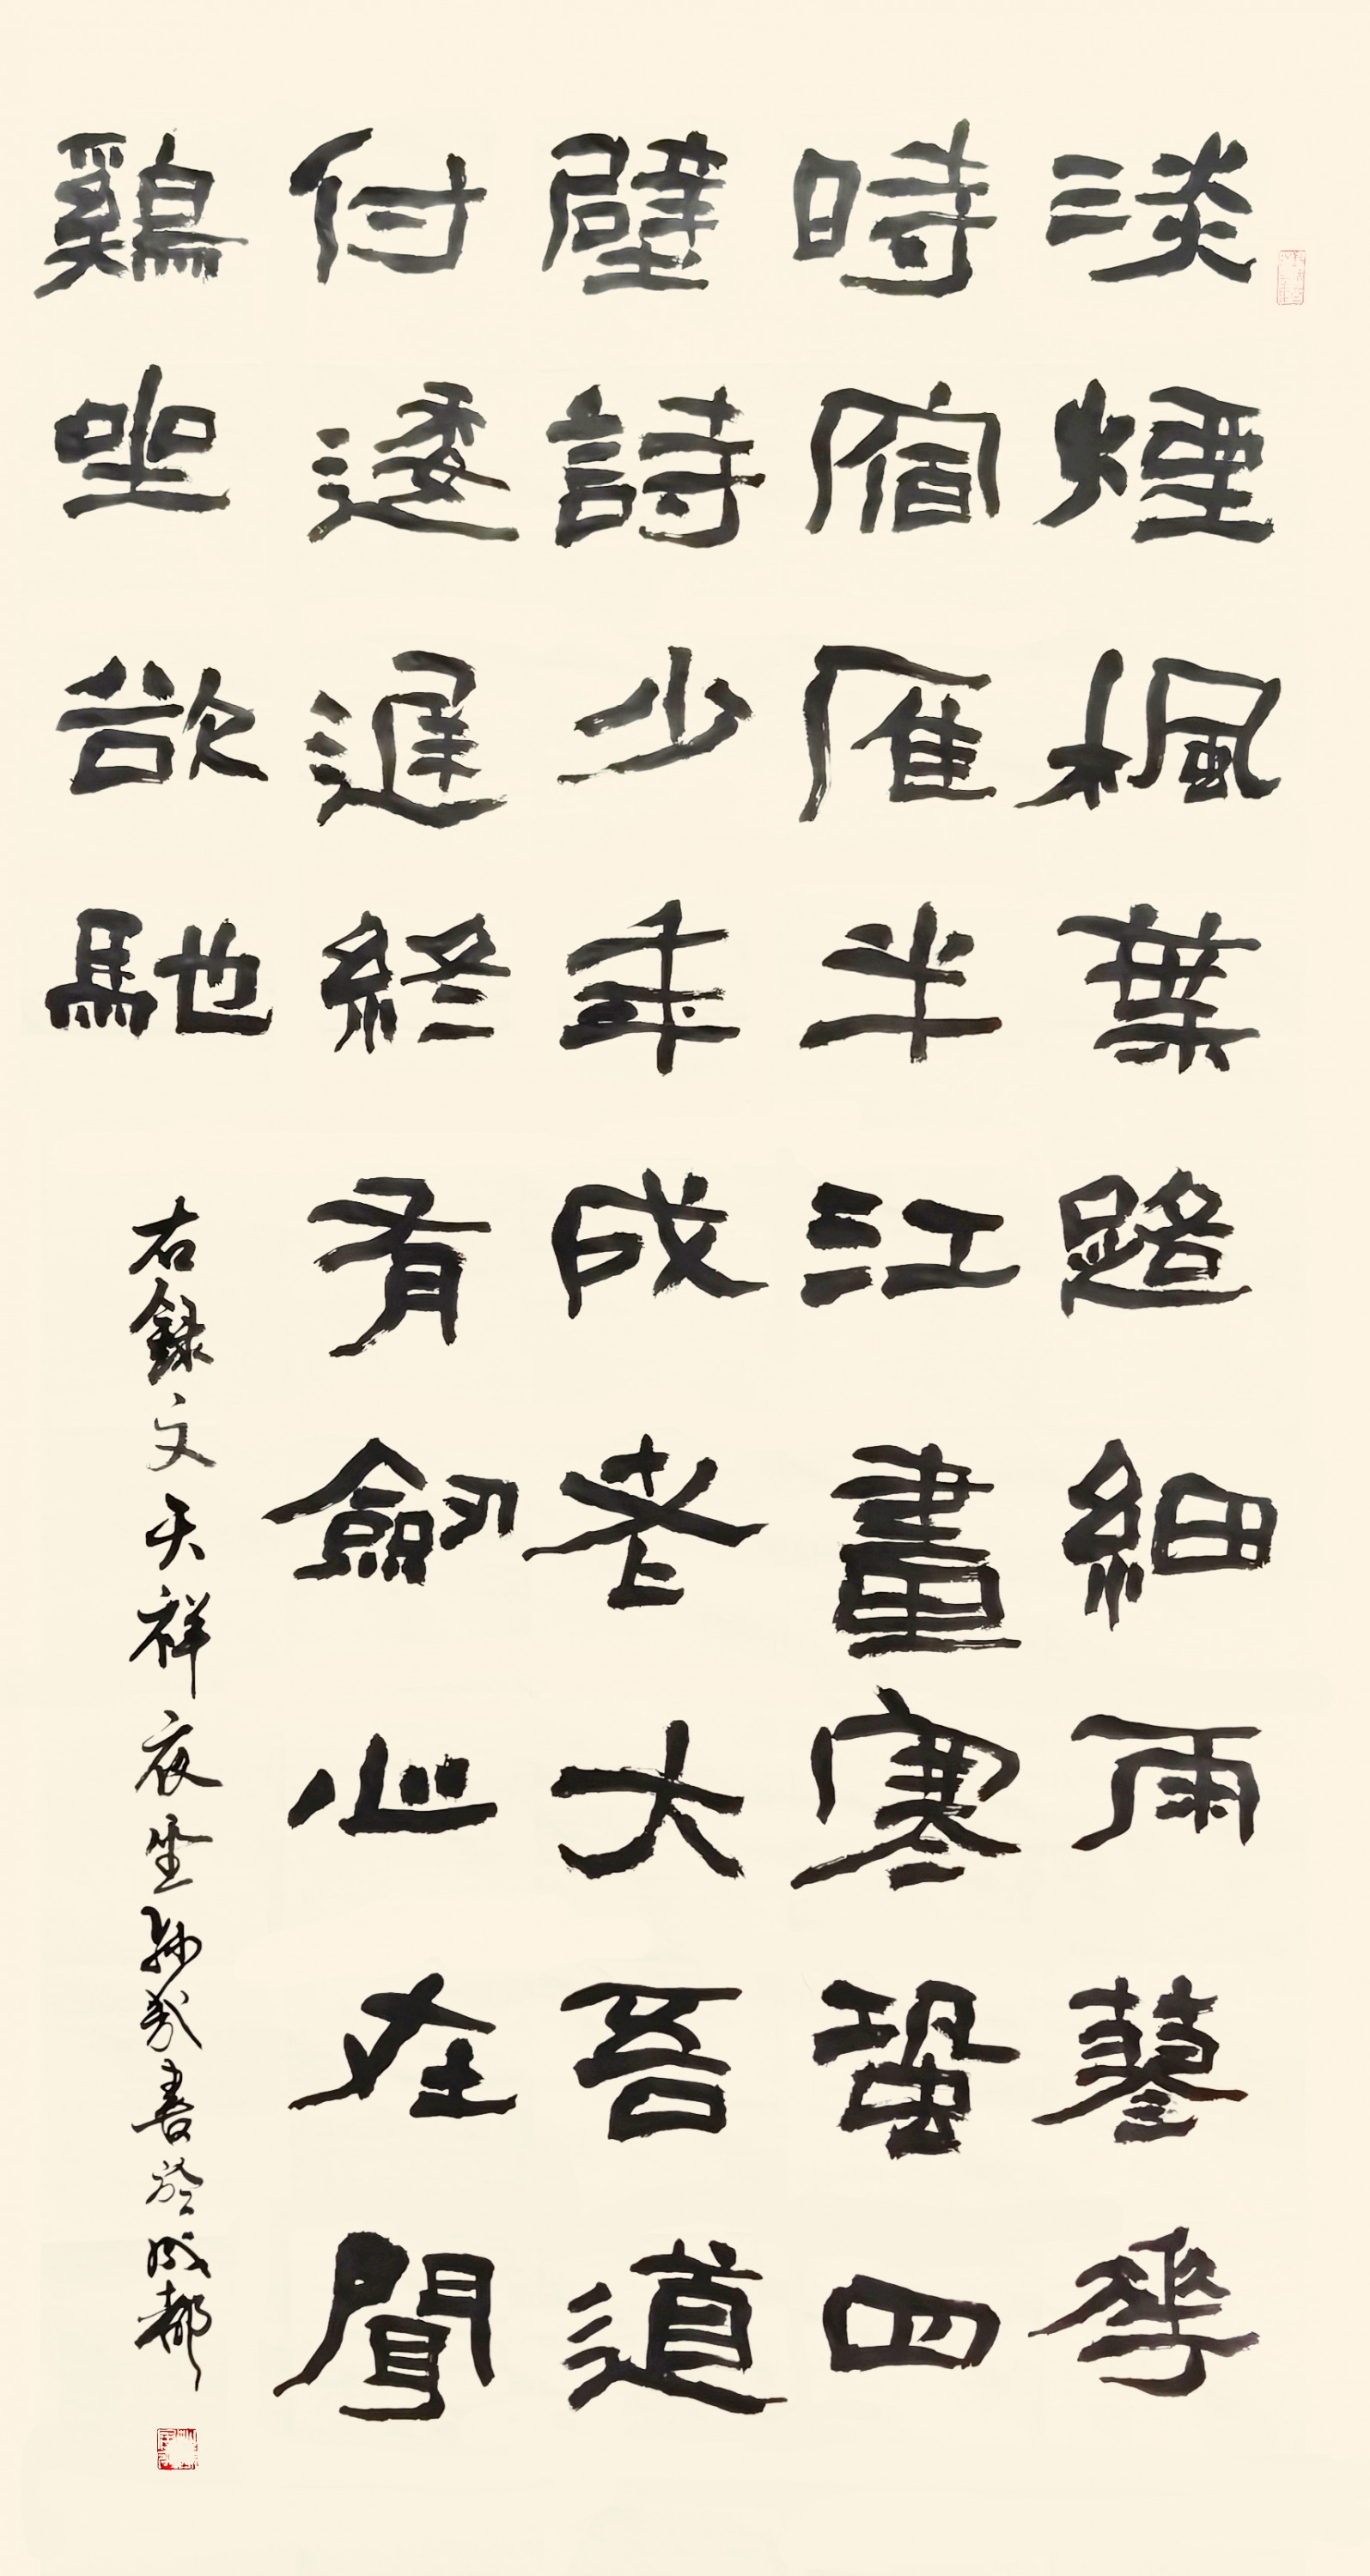 淡煙楓葉路細雨蓼花
時宿雁半江畫寒蛩四
壁詩少年成老大吾道
付逶遲終有劒心在聞
鷄坐欲馳
右錄文天祥夜坐孫書於成都